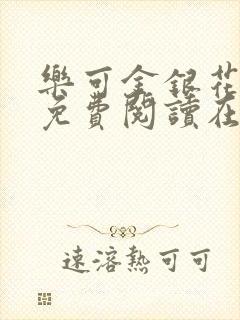 樂可金銀花
免費閱讀在
速溶熱可可